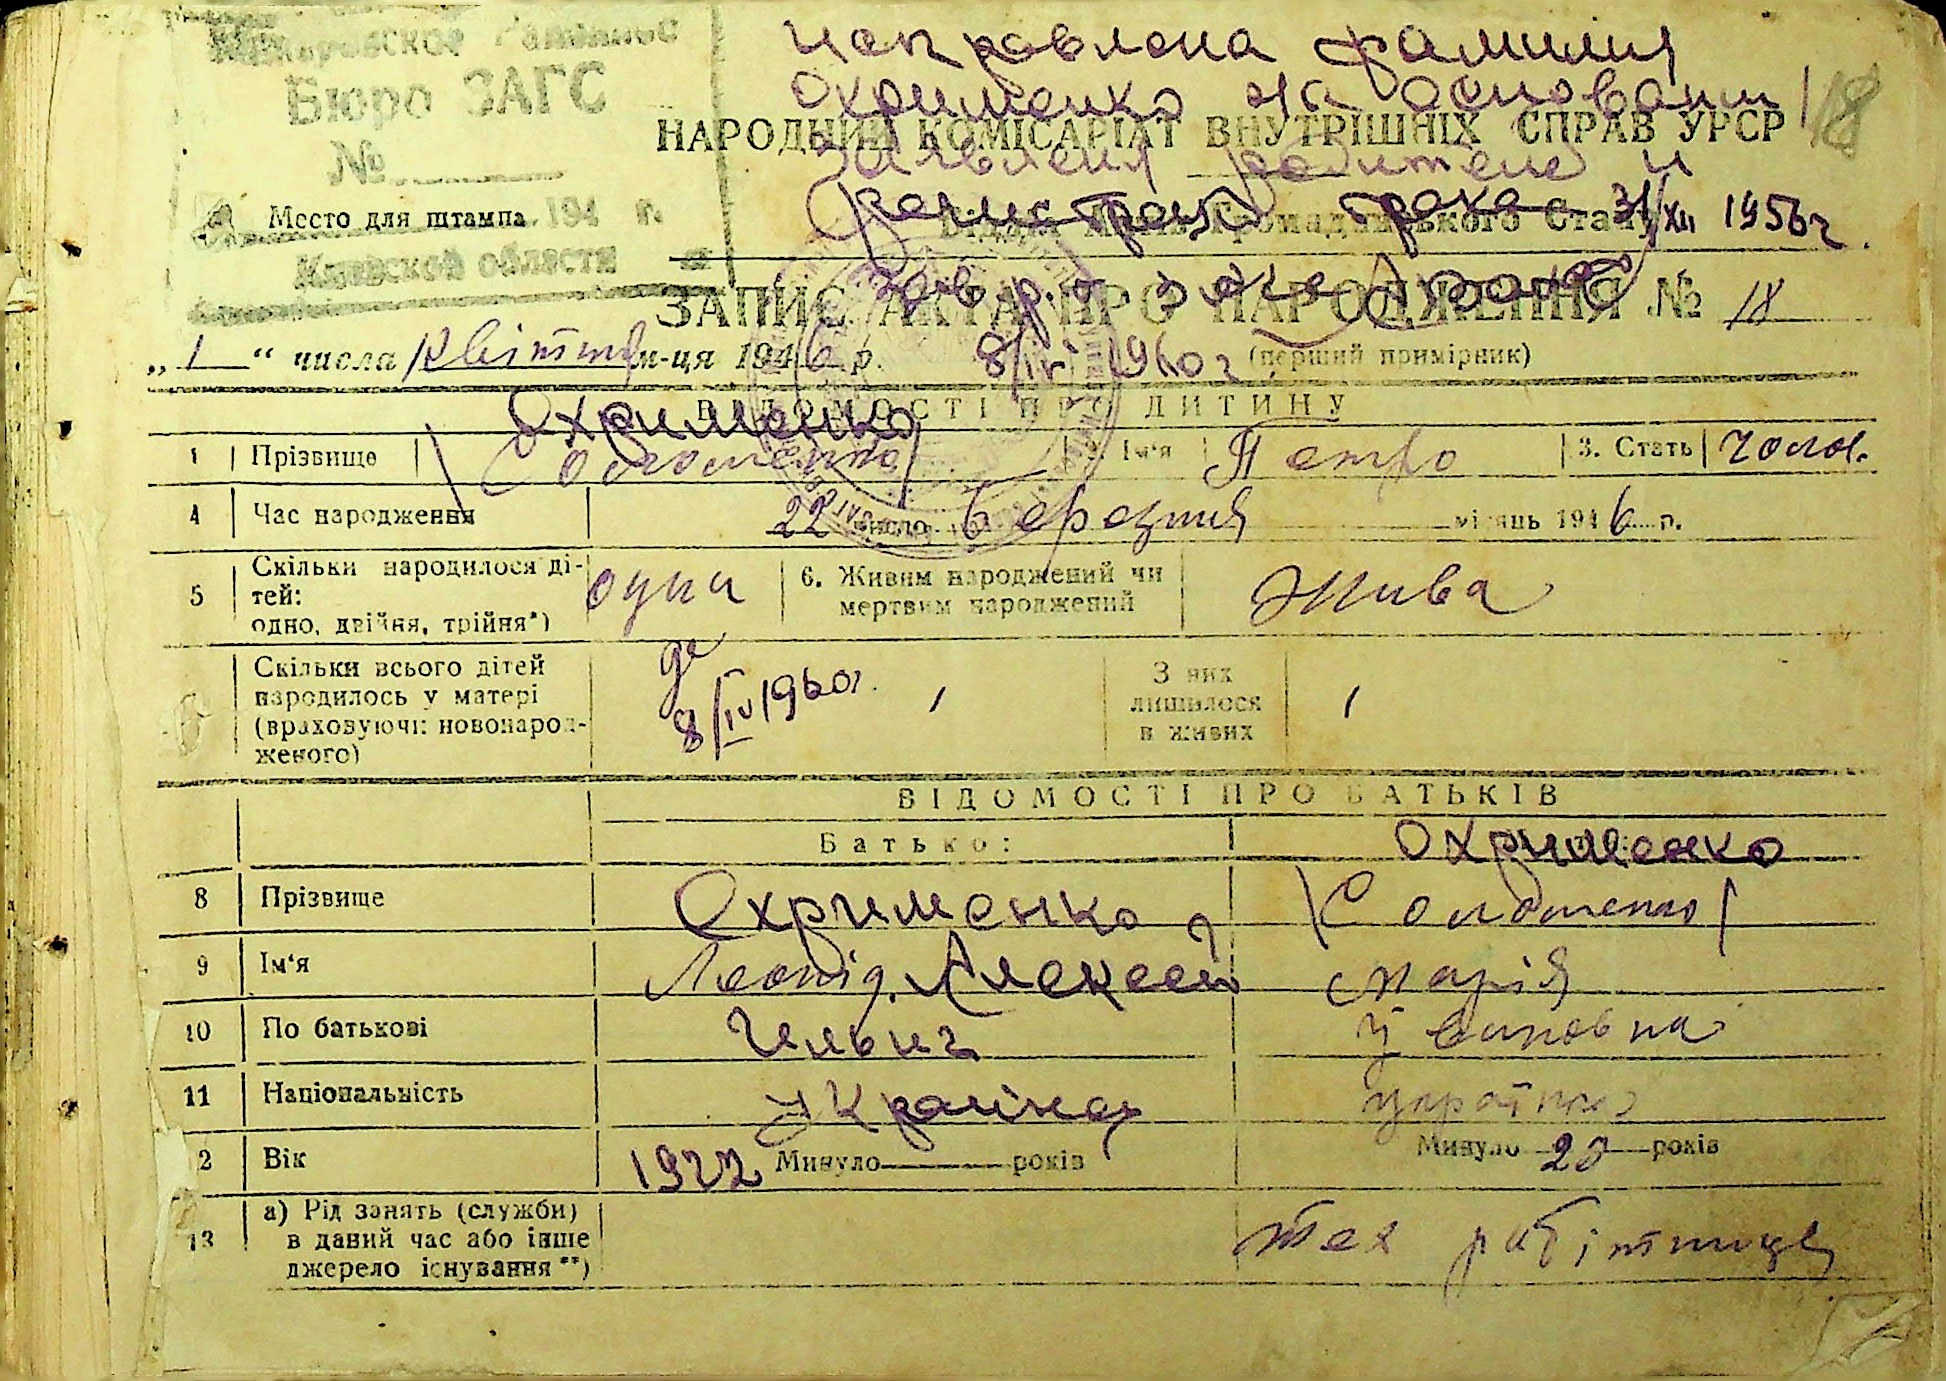 исправлена фамилия
Охрименко на основании
заявления родителей и
регистрации брака 31/XII 1956 г.
Зав.
8/IV 1960 г.
Районное
Бюро ЗАГС
№
194 г.
Киевской области
Место для штампа
18
НАРОДНИЙ КОМІСАРІАТ ВНУТРІШНІХ СПРАВ УРСР
Відділ Актів Громадянського Стану
ЗАПИС АКТА ПРО НАРОДЖЕННЯ № 18
„1“ числа квітня м-ця 1946 р. (перший примірник)
ВІДОМОСТІ ПРО ДИТИНУ
Охрименко
1 Прізвище 2. Ім‘я Петро 3. Стать чолов.
4 Час народження 22 число березня місяць 1946 р.
5 Скільки народилося ді-
тей:
одно, двійня, трійня*) одна 6. Живим народжений чи
мертвим народжений Жива
Скільки всього дітей
народилось у матері
(враховуючи новонарод-
женого) 8/IV 1960 г. 1 З них
лишилося
в живих 1
ВІДОМОСТІ ПРО БАТЬКІВ
Батько: Охрименко
8 Прізвище Охрименко
9 Ім‘я Леонід, Алексей Марія
10 По батькові Ильич
11 Національність Українец українка
2 Вік 1922 Минуло років Минуло 23 років
13 а) Рід занять (служби)
в даний час або інше
джерело існування**) робітниця